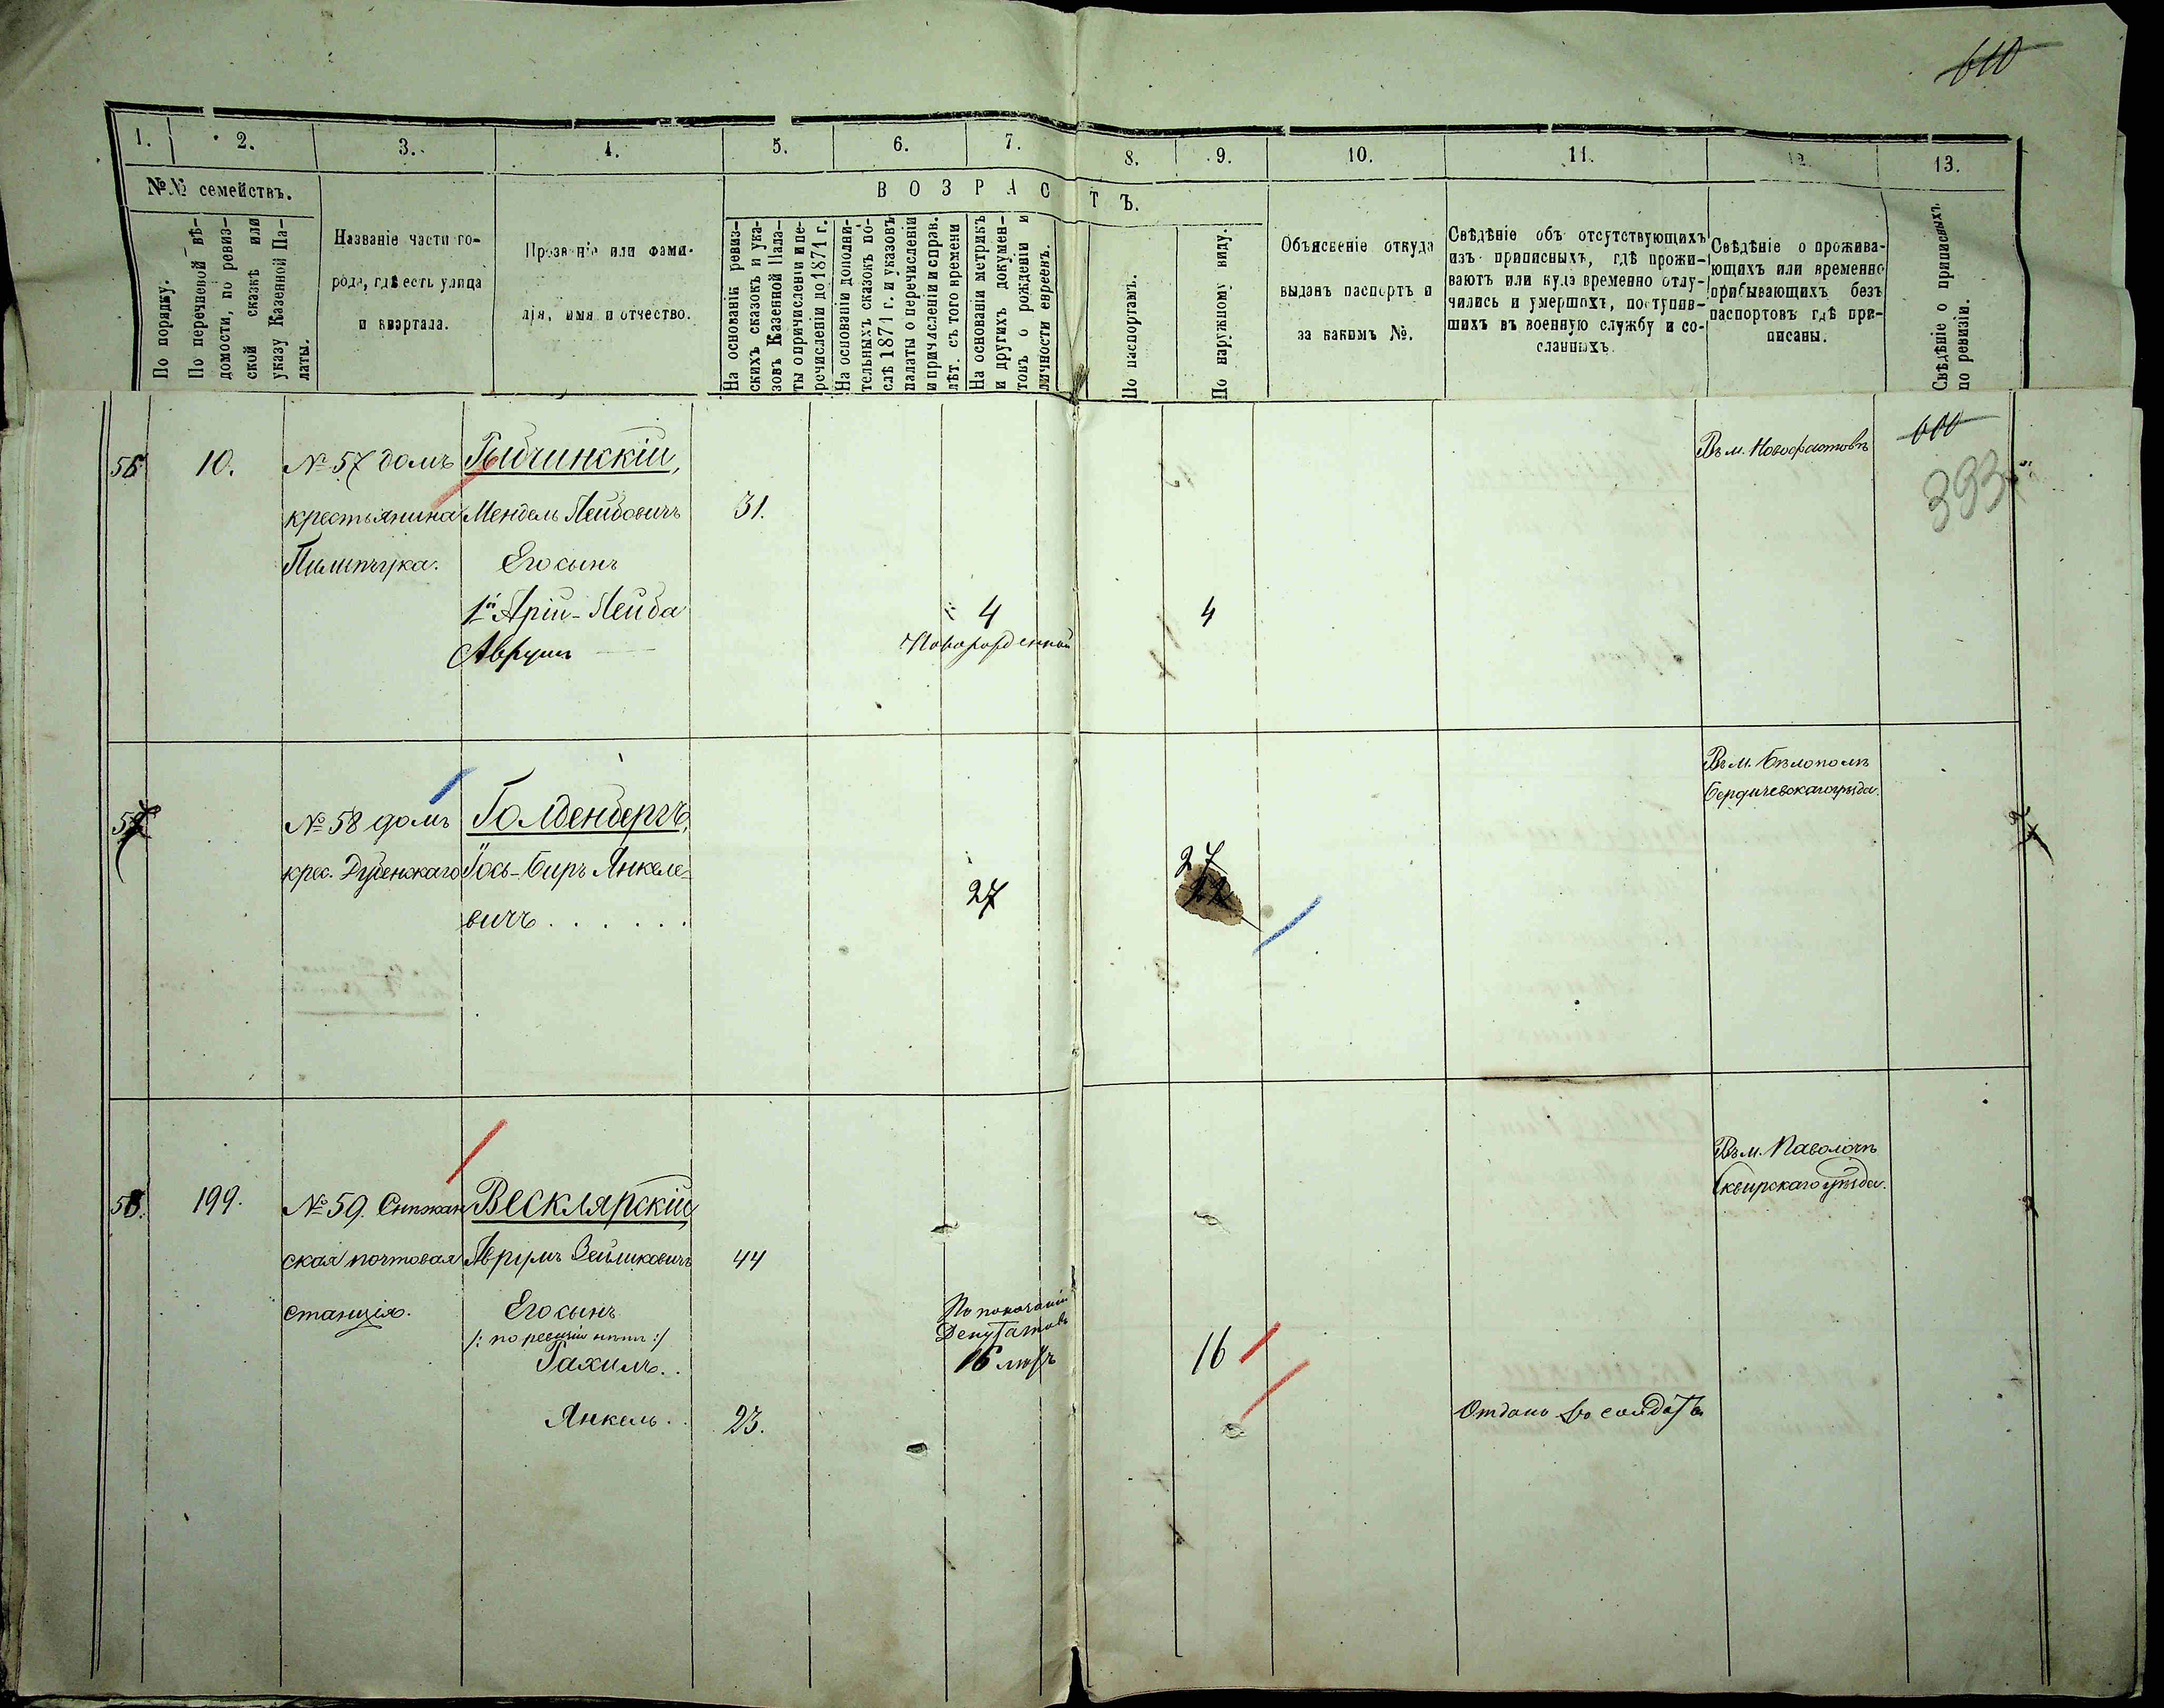 610
1. 2. 3. 4. 5. 6. 7. 8. 9. 10. 11. 12. 13.
№№ семействъ.
В О З Р А С Т Ъ.
По порядку.
По перечневой вѣ-
домости, по ревиз-
ской сказкѣ или
указу Казенной Па-
латы.
Названіе части го-
рода, гдѣ есть улица
и квартала.
Прозваніе или фами-
лія, имя и отчество.
На основаніи ревиз-
скихъ сказокъ и ука-
зовъ Казенной Пала-
ты о причисленіи и пе-
речисленіи до 1871 г.
На основаніи дополни-
тельныхъ сказокъ по-
слѣ 1871 г. и указовъ
палаты о перечисленіи
и причисленіи и справ.
лѣт. съ того времени
На основаніи метрикъ
и другихъ докумен-
товъ о рожденіи и
личности евреевъ.
По паспортамъ.
По наружному виду.
Объясненіе откуда
выданъ паспортъ и
за какимъ №.
Свѣдѣніе объ отсутствующихъ
изъ приписныхъ, гдѣ прожи-
ваютъ или куда временно отлу-
чились и умершихъ, поступив-
шихъ въ военную службу и со-
сланныхъ.
Свѣдѣніе о прожива-
ющихъ или временно
прибывающихъ безъ
паспортовъ гдѣ при-
писаны.
Свѣдѣніе о приписныхъ
по ревизіи.
56 10. № 57 домъ
крестьянина
Пилипчука.
Мендель Лейбовичъ 31.
Его сынъ
1й Арій-Лейба 4 4
Аврумъ Новорожденный
Въ м. Новофастовѣ
600
393
57 № 58 домъ Голденбергъ,
крес. Дубенскаго Іось-Биръ Янкеле-
вичъ . . . . . . 27 27
Въ м. Бѣлополѣ
Бердичевскаго уѣзда.
58. 199. № 59. Снѣжан Весклярскій
ская почтовая Аврумъ Зейликовичъ 44
станція. Его сынъ
/: по ревизіи нѣтъ :/
Рахиль . . 16 лѣтъ 16
По показанію
Депутатовъ
Янкель . . 23. Отданъ въ солдаты
Въ м. Паволочѣ
Сквирскаго уѣзда.